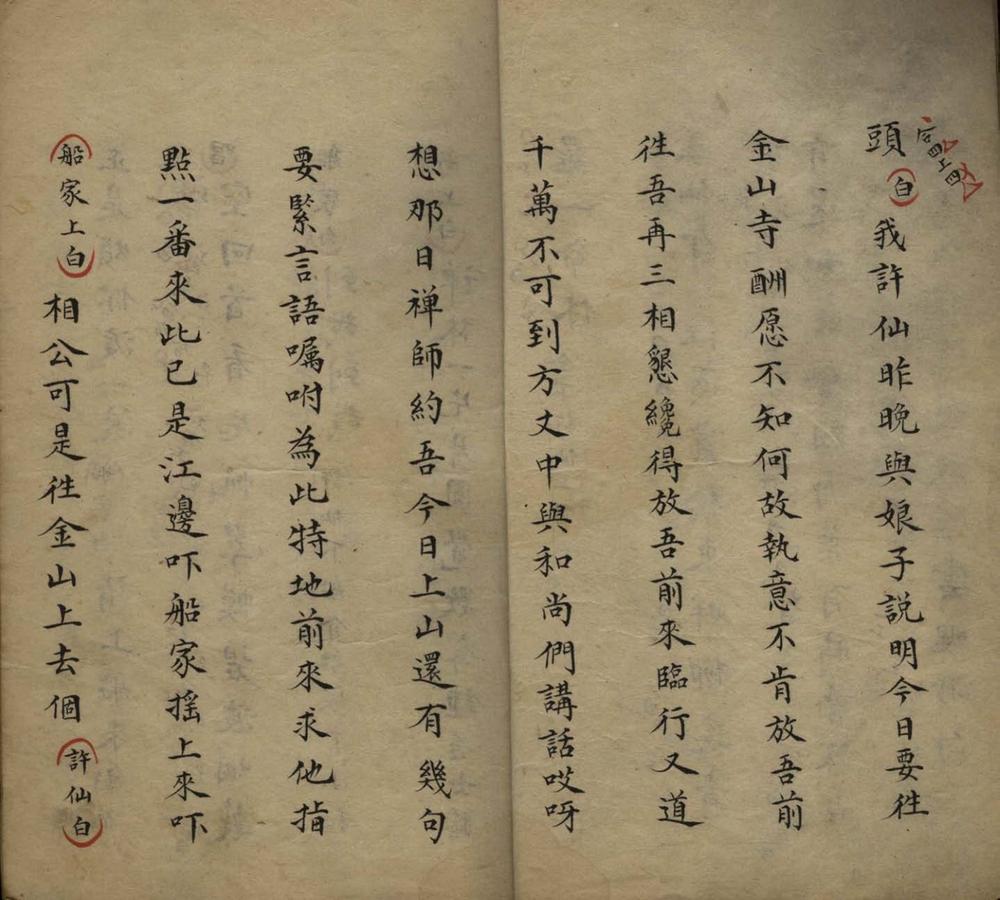 頭(白)我許仙昨晚與娘子説明今日要徃
金山寺酬愿不知何故執意不肯放吾前
徃吾再三相懇纔得放吾前來臨行又道
千萬不可到方丈中與和尚們講話哎呀
想那日禅師約吾今日上山還有幾句
要緊言語囑咐為此特地前來求他指
點一番來此已是江邊吓船家摇上來吓
(船家上白)相公可是徃金山上去個(許仙白)